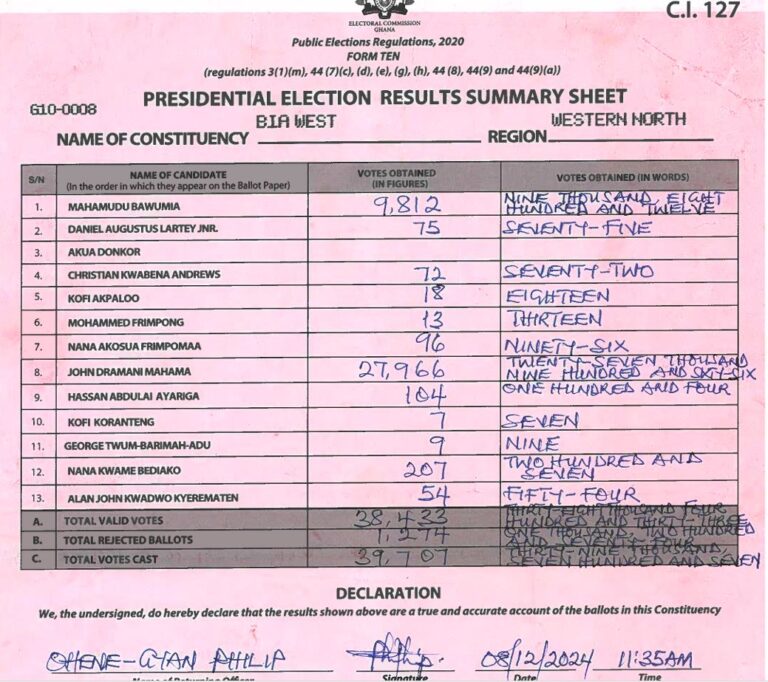 C.I. 127
ELECTORAL COMMISSION
GHANA
Public Elections Regulations, 2020
FORM TEN
(regulations 3(1)(m), 44 (7)(c), (d), (e), (g), (h), 44 (8), 44(9) and 44(9)(a))
G10-0008
PRESIDENTIAL ELECTION RESULTS SUMMARY SHEET
NAME OF CONSTITUENCY BIA WEST REGION WESTERN NORTH
S/N NAME OF CANDIDATE (In the order in which they appear on the Ballot Paper) VOTES OBTAINED (IN FIGURES) VOTES OBTAINED (IN WORDS)
1. MAHAMUDU BAWUMIA 9,812 NINE THOUSAND, EIGHT HUNDRED AND TWELVE
2. DANIEL AUGUSTUS LARTEY JNR. 75 SEVENTY-FIVE
3. AKUA DONKOR
4. CHRISTIAN KWABENA ANDREWS 72 SEVENTY-TWO
5. KOFI AKPALOO 18 EIGHTEEN
6. MOHAMMED FRIMPONG 13 THIRTEEN
7. NANA AKOSUA FRIMPOMAA 96 NINETY-SIX
8. JOHN DRAMANI MAHAMA 27,966 TWENTY-SEVEN THOUSAND NINE HUNDRED AND SIXTY-SIX
9. HASSAN ABDULAI AYARIGA 104 ONE HUNDRED AND FOUR
10. KOFI KORANTENG 7 SEVEN
11. GEORGE TWUM-BARIMAH-ADU 9 NINE
12. NANA KWAME BEDIAKO 207 TWO HUNDRED AND SEVEN
13. ALAN JOHN KWADWO KYEREMATEN 54 FIFTY-FOUR
A. TOTAL VALID VOTES 38,433 THIRTY-EIGHT THOUSAND FOUR HUNDRED AND THIRTY-THREE
B. TOTAL REJECTED BALLOTS 1,274 ONE THOUSAND, TWO HUNDRED AND SEVENTY-FOUR
C. TOTAL VOTES CAST 39,707 THIRTY-NINE THOUSAND, SEVEN HUNDRED AND SEVEN
DECLARATION
We, the undersigned, do hereby declare that the results shown above are a true and accurate account of the ballots in this Constituency
OHENE-GYAN PHILIP 08/12/2024 11:35AM
Name of Returning Officer Signature Date Time